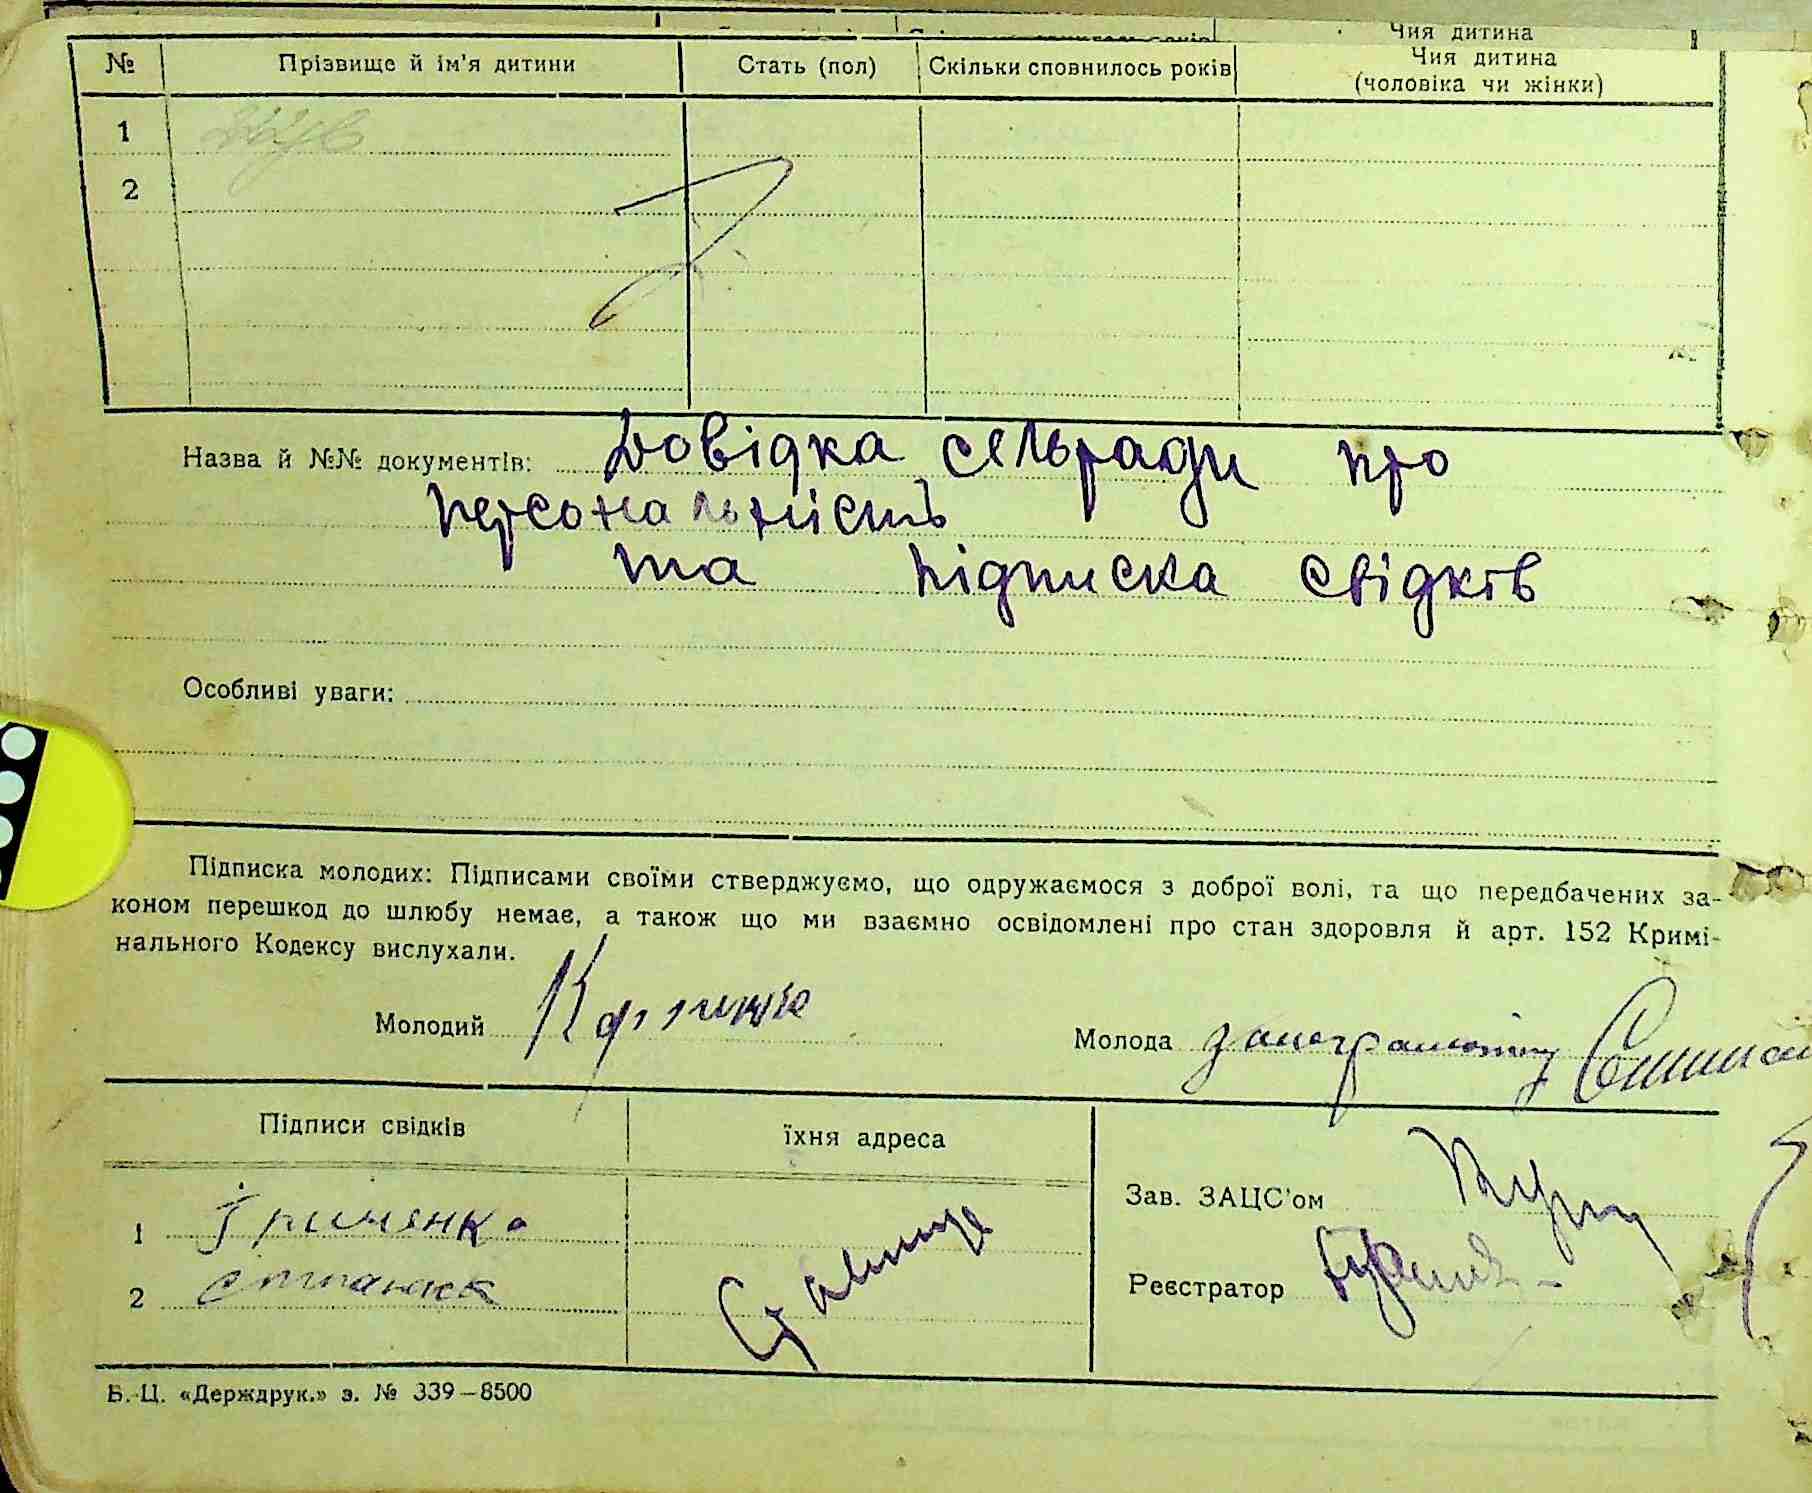 Чия дитина
№ Прізвище й ім'я дитини Стать (пол) Скільки сповнилось років Чия дитина (чоловіка чи жінки)
1
2
Назва й №№ документів: Довідка сельради про
персональність
та підписка свідків
Особливі уваги:
Підписка молодих: Підписами своїми стверджуємо, що одружаємося з доброї волі, та що передбачених за-
коном перешкод до шлюбу немає, а також що ми взаємно освідомлені про стан здоровля й арт. 152 Кримі-
нального Кодексу вислухали.
Молодий
Молода за неграмотну
Підписи свідків їхня адреса
Зав. ЗАЦС'ом
1 Гриценко
2
Реєстратор
Б. Ц. «Держдрук.» з. № 339—8500